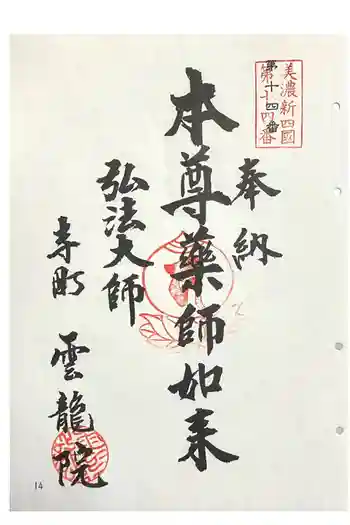 美濃新四國
第十四番
奉納
本尊藥師如来
弘法大師
寺町
雲龍院
14